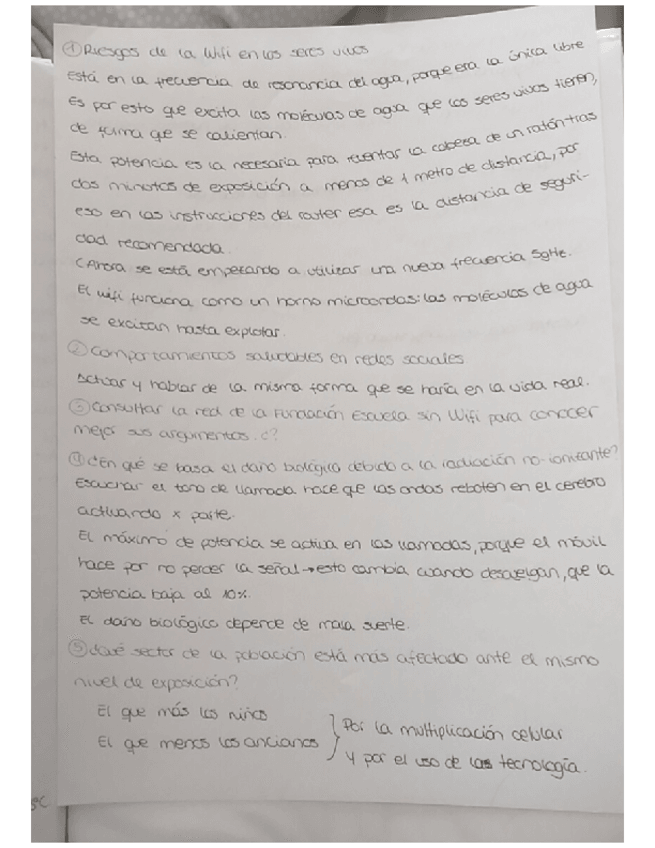 ① Riesgos de la Wifi en los seres vivos
Está en la frecuencia de resonancia del agua, porque era la única libre
Es por esto que excita las moléculas de agua que los seres vivos tienen,
de forma que se calientan.
Esta potencia es la necesaria para reventar la cabeza de un ratón tras
dos minutos de exposición a menos de 1 metro de distancia, por
eso en las instrucciones del router esa es la distancia de seguri-
dad recomendada.
(Ahora se está empezando a utilizar una nueva frecuencia 5gHz.
El wifi funciona como un horno microondas: las moléculas de agua
se excitan hasta explotar.
② Comportamientos saludables en redes sociales
Actuar y hablar de la misma forma que se haría en la vida real.
③ Consultar la red de la Fundación Escuela sin Wifi para conocer
mejor sus argumentos. ¿?
④ ¿En qué se basa el daño biológico debido a la radiación no-ionizante?
Escuchar el tono de llamada hace que las ondas reboten en el cerebro
activando x parte.
El máximo de potencia se activa en las llamadas, porque el móvil
hace por no perder la señal → esto cambia cuando descuelgan, que la
potencia baja al 10%.
El daño biológico depende de mala suerte.
⑤ ¿Qué sector de la población está más afectado ante el mismo
nivel de exposición?
El que más los niños
El que menos los ancianos } Por la multiplicación celular
y por el uso de las tecnología.